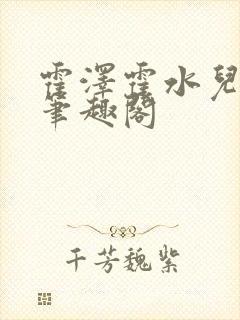 霍澤霍水兒
筆趣閣
千芳魏紫